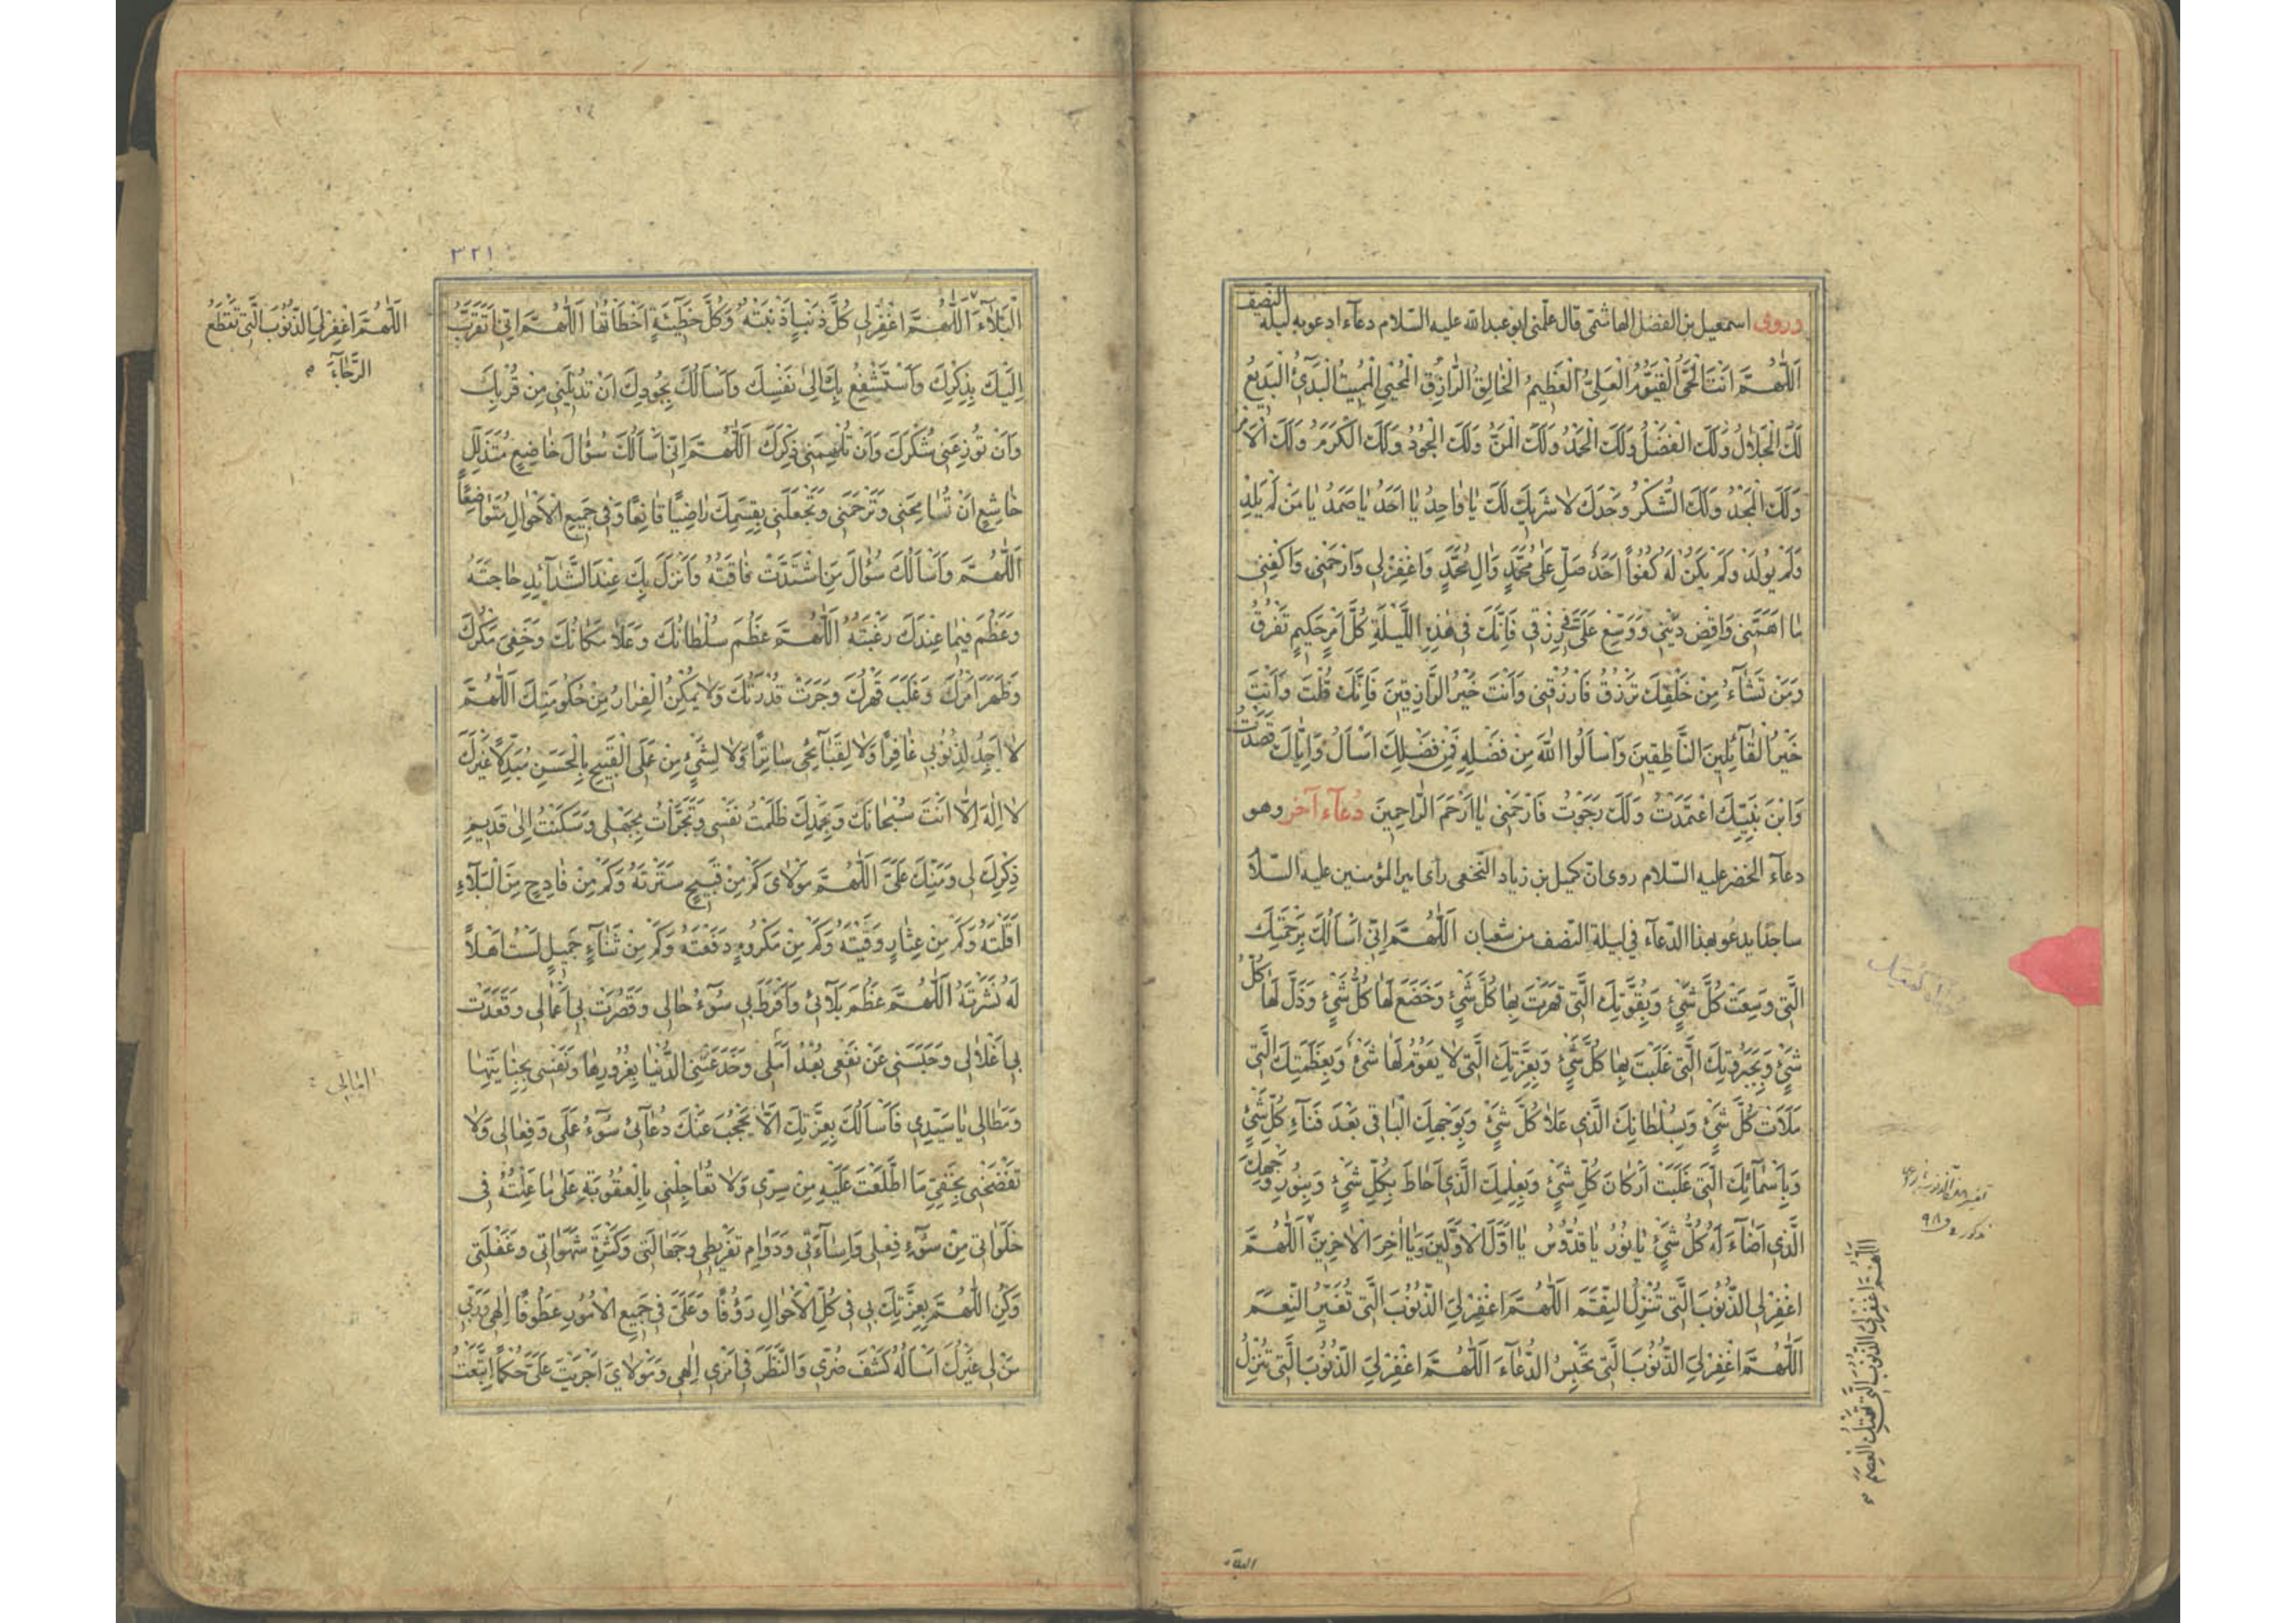 وروى اسمعيل بن الفضل الهاشمى قال علمنى ابو عبد الله عليه السلام دعآء ادعو به ليلة النصف
اَللّٰهُمَّ اَنْتَ الْحَىُّ الْقَيُّومُ الْعَلِىُّ الْعَظِيمُ الْخَالِقُ الرَّازِقُ الْمُحْيِى الْمُمِيتُ الْبَدِىٓءُ الْبَدِيعُ
لَكَ الْجَلَالُ وَلَكَ الْفَضْلُ وَلَكَ الْحَمْدُ وَلَكَ الْمَنُّ وَلَكَ الْجُودُ وَلَكَ الْكَرَمُ وَلَكَ الْاَمْرُ
وَلَكَ الْمَجْدُ وَلَكَ الشُّكْرُ وَحْدَكَ لَا شَرِيكَ لَكَ يَا وَاحِدُ يَا اَحَدُ يَا صَمَدُ يَا مَنْ لَمْ يَلِدْ
وَلَمْ يُولَدْ وَلَمْ يَكُنْ لَهُ كُفُوًا اَحَدٌ صَلِّ عَلٰى مُحَمَّدٍ وَاٰلِ مُحَمَّدٍ وَاغْفِرْ لِى وَارْحَمْنِى وَاكْفِنِى
مَا اَهَمَّنِى وَاقْضِ دَيْنِى وَوَسِّعْ عَلَىَّ فِى رِزْقِى فَاِنَّكَ فِى هٰذِهِ اللَّيْلَةِ كُلَّ اَمْرٍ حَكِيمٍ تَفْرُقُ
وَمَنْ تَشَآءُ مِنْ خَلْقِكَ تَرْزُقُ فَارْزُقْنِى وَاَنْتَ خَيْرُ الرَّازِقِينَ فَاِنَّكَ قُلْتَ وَاَنْتَ
خَيْرُ الْقَآئِلِينَ النَّاطِقِينَ وَاسْاَلُوا اللّٰهَ مِنْ فَضْلِهِ فَمِنْ فَضْلِكَ اَسْاَلُ وَاِيَّاكَ قَصَدْتُ
وَابْنَ نَبِيِّكَ اعْتَمَدْتُ وَلَكَ رَجَوْتُ فَارْحَمْنِى يَا اَرْحَمَ الرَّاحِمِينَ دُعآء آخر وهو
دعآء الخضر عليه السلام روى ان كميل بن زياد النخعى راى امير المؤمنين عليه السلام
ساجدا يدعو بهذا الدعآء فى ليلة النصف من شعبان اَللّٰهُمَّ اِنِّى اَسْاَلُكَ بِرَحْمَتِكَ
الَّتِى وَسِعَتْ كُلَّ شَىْءٍ وَبِقُوَّتِكَ الَّتِى قَهَرْتَ بِهَا كُلَّ شَىْءٍ وَخَضَعَ لَهَا كُلُّ شَىْءٍ وَذَلَّ لَهَا كُلُّ
شَىْءٍ وَبِجَبَرُوتِكَ الَّتِى غَلَبْتَ بِهَا كُلَّ شَىْءٍ وَبِعِزَّتِكَ الَّتِى لَا يَقُومُ لَهَا شَىْءٌ وَبِعَظَمَتِكَ الَّتِى
مَلَاَتْ كُلَّ شَىْءٍ وَبِسُلْطَانِكَ الَّذِى عَلَا كُلَّ شَىْءٍ وَبِوَجْهِكَ الْبَاقِى بَعْدَ فَنَآءِ كُلِّ شَىْءٍ
وَبِاَسْمَآئِكَ الَّتِى غَلَبَتْ اَرْكَانَ كُلِّ شَىْءٍ وَبِعِلْمِكَ الَّذِى اَحَاطَ بِكُلِّ شَىْءٍ وَبِنُورِ وَجْهِكَ
الَّذِى اَضَآءَ لَهُ كُلُّ شَىْءٍ يَا نُورُ يَا قُدُّوسُ يَا اَوَّلَ الْاَوَّلِينَ وَيَا اٰخِرَ الْاٰخِرِينَ اَللّٰهُمَّ
اغْفِرْ لِى الذُّنُوبَ الَّتِى تُنْزِلُ النِّقَمَ اَللّٰهُمَّ اغْفِرْ لِىَ الذُّنُوبَ الَّتِى تُغَيِّرُ النِّعَمَ
اَللّٰهُمَّ اغْفِرْ لِىَ الذُّنُوبَ الَّتِى تَحْبِسُ الدُّعَآءَ اَللّٰهُمَّ اغْفِرْ لِىَ الذُّنُوبَ الَّتِى تُنْزِلُ
اَللّٰهُمَّ اغْفِرْ لِىَ الذُّنُوبَ الَّتِى تَهْتِكُ الْعِصَمَ
دعاء كميل
البلآء
٣٢١
الْبَلَآءَ اَللّٰهُمَّ اغْفِرْ لِى كُلَّ ذَنْبٍ اَذْنَبْتُهُ وَكُلَّ خَطِيٓئَةٍ اَخْطَاْتُهَا اَللّٰهُمَّ اِنِّى اَتَقَرَّبُ
اِلَيْكَ بِذِكْرِكَ وَاَسْتَشْفِعُ بِكَ اِلٰى نَفْسِكَ وَاَسْاَلُكَ بِجُودِكَ اَنْ تُدْنِيَنِى مِنْ قُرْبِكَ
وَاَنْ تُوزِعَنِى شُكْرَكَ وَاَنْ تُلْهِمَنِى ذِكْرَكَ اَللّٰهُمَّ اِنِّى اَسْاَلُكَ سُؤَالَ خَاضِعٍ مُتَذَلِّلٍ
خَاشِعٍ اَنْ تُسَامِحَنِى وَتَرْحَمَنِى وَتَجْعَلَنِى بِقِسْمِكَ رَاضِيًا قَانِعًا وَفِى جَمِيعِ الْاَحْوَالِ مُتَوَاضِعًا
اَللّٰهُمَّ وَاَسْاَلُكَ سُؤَالَ مَنِ اشْتَدَّتْ فَاقَتُهُ وَاَنْزَلَ بِكَ عِنْدَ الشَّدَآئِدِ حَاجَتَهُ
وَعَظُمَ فِيمَا عِنْدَكَ رَغْبَتُهُ اَللّٰهُمَّ عَظُمَ سُلْطَانُكَ وَعَلَا مَكَانُكَ وَخَفِىَ مَكْرُكَ
وَظَهَرَ اَمْرُكَ وَغَلَبَ قَهْرُكَ وَجَرَتْ قُدْرَتُكَ وَلَا يُمْكِنُ الْفِرَارُ مِنْ حُكُومَتِكَ اَللّٰهُمَّ
لَا اَجِدُ لِذُنُوبِى غَافِرًا وَلَا لِقَبَآئِحِى سَاتِرًا وَلَا لِشَىْءٍ مِنْ عَمَلِىَ الْقَبِيحِ بِالْحَسَنِ مُبَدِّلًا غَيْرَكَ
لَا اِلٰهَ اِلَّا اَنْتَ سُبْحَانَكَ وَبِحَمْدِكَ ظَلَمْتُ نَفْسِى وَتَجَرَّاْتُ بِجَهْلِى وَسَكَنْتُ اِلٰى قَدِيمِ
ذِكْرِكَ لِى وَمَنِّكَ عَلَىَّ اَللّٰهُمَّ مَوْلَاىَ كَمْ مِنْ قَبِيحٍ سَتَرْتَهُ وَكَمْ مِنْ فَادِحٍ مِنَ الْبَلَآءِ
اَقَلْتَهُ وَكَمْ مِنْ عِثَارٍ وَقَيْتَهُ وَكَمْ مِنْ مَكْرُوهٍ دَفَعْتَهُ وَكَمْ مِنْ ثَنَآءٍ جَمِيلٍ لَسْتُ اَهْلًا
لَهُ نَشَرْتَهُ اَللّٰهُمَّ عَظُمَ بَلَآئِى وَاَفْرَطَ بِى سُوٓءُ حَالِى وَقَصُرَتْ بِى اَعْمَالِى وَقَعَدَتْ
بِى اَغْلَالِى وَحَبَسَنِى عَنْ نَفْعِى بُعْدُ اَمَلِى وَخَدَعَتْنِى الدُّنْيَا بِغُرُورِهَا وَنَفْسِى بِجِنَايَتِهَا
وَمَطَالِى يَا سَيِّدِى فَاَسْاَلُكَ بِعِزَّتِكَ اَلَّا يَحْجُبَ عَنْكَ دُعَآئِى سُوٓءُ عَمَلِى وَفِعَالِى وَلَا
تَفْضَحْنِى بِخَفِىِّ مَا اطَّلَعْتَ عَلَيْهِ مِنْ سِرِّى وَلَا تُعَاجِلْنِى بِالْعُقُوبَةِ عَلٰى مَا عَمِلْتُهُ فِى
خَلَوَاتِى مِنْ سُوٓءِ فِعْلِى وَاِسَآءَتِى وَدَوَامِ تَفْرِيطِى وَجَهَالَتِى وَكَثْرَةِ شَهَوَاتِى وَغَفْلَتِى
وَكُنِ اللّٰهُمَّ بِعِزَّتِكَ بِى فِى كُلِّ الْاَحْوَالِ رَؤُفًا وَعَلَىَّ فِى جَمِيعِ الْاُمُورِ عَطُوفًا اِلٰهِى وَرَبِّى
مَنْ لِى غَيْرُكَ اَسْاَلُهُ كَشْفَ ضُرِّى وَالنَّظَرَ فِى اَمْرِى اِلٰهِى وَمَوْلَاىَ اَجْرَيْتَ عَلَىَّ حُكْمًا اتَّبَعْتُ
اَللّٰهُمَّ اغْفِرْ لِىَ الذُّنُوبَ الَّتِى تَقْطَعُ
الرَّجَآءَ
امالى